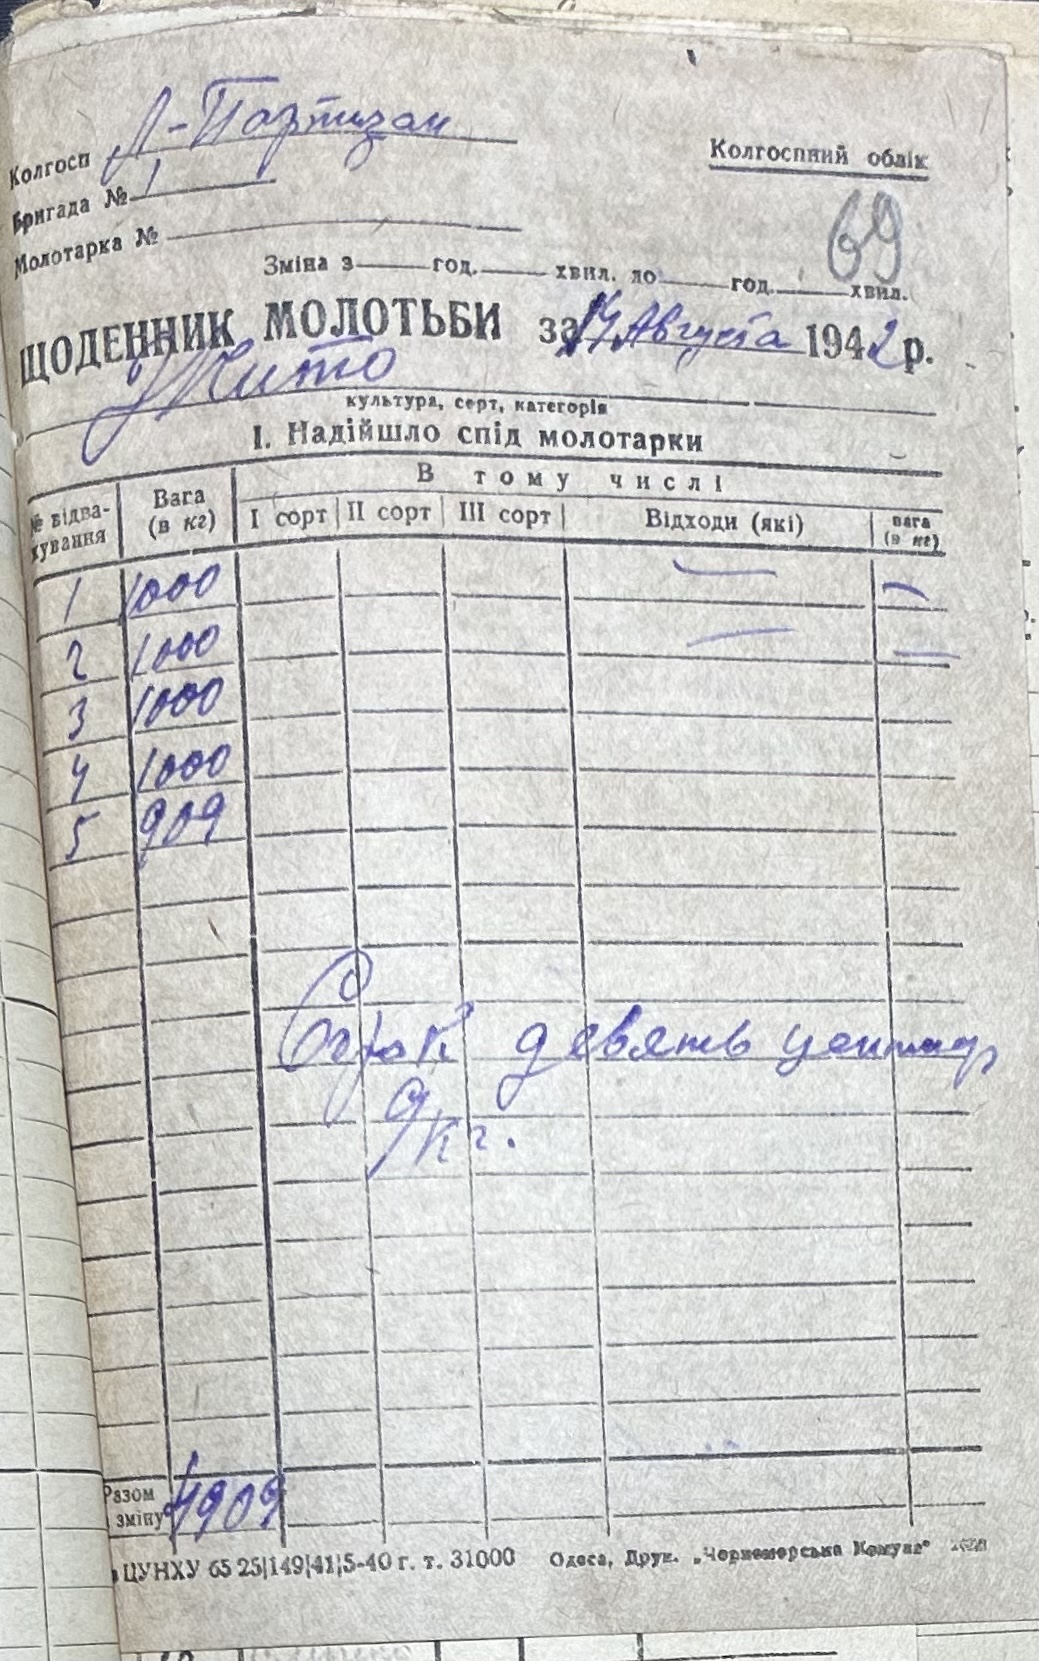 Колгосп Л-Партизан
Колгоспний облік
Бригада № 1
69
Молотарка №
Зміна з год. хвил. до год. хвил.
ЩОДЕННИК МОЛОТЬБИ за 14 Августа 1942 р.
Жито
культура, серт, категорія
I. Надійшло спід молотарки
№ відва-
жування
Вага
(в кг)
В тому числі
I сорт II сорт III сорт Відходи (які) вага
(в кг)
1 1000 — —
2 1000 — —
3 1000
4 1000
5 909
Сорок девять центнер
9 кг.
Разом
зміну 4909
ЦУНХУ 65 25|149|41|5-40 г. т. 31000 Одеса, Друк. „Чорноморська Комуна"